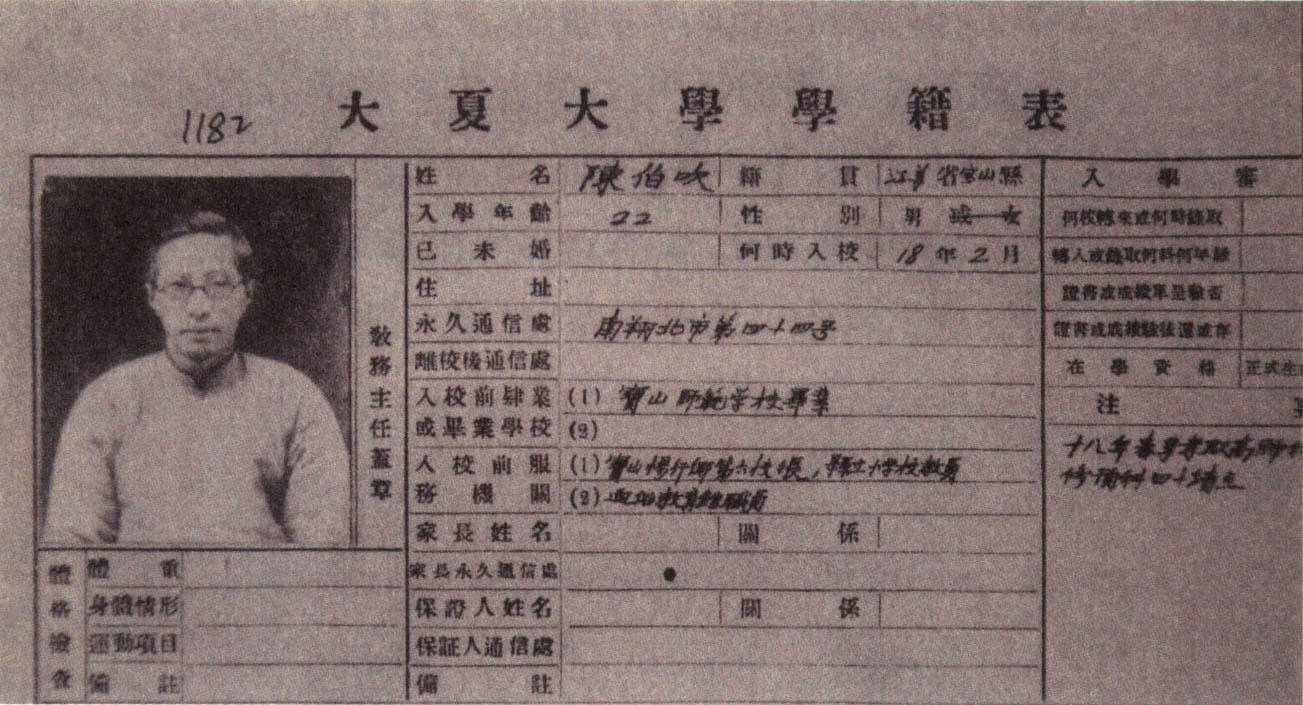 1182
大夏大學學籍表
教務主任蓋章
姓名 陳伯吹 籍貫 江蘇省寶山縣
入學年齡 22 性別 男或女
已未婚 何時入校 18年2月
住址
永久通信處 南翔北市第四十四号
離校後通信處
入校前肄業 (1) 寶山師範学校畢業
或畢業學校 (2)
入校前服 (1) 寶山楊行鄉第六校校長, 縣立小学校教員
務機關 (2) 教育館職員
家長姓名 關係
家長永久通信處
保證人姓名 關係
保証人通信處
備註
體格檢查
體重
身體情形
運動項目
備註
入學審
何校轉來或何時錄取
轉入或錄取何科何年級
證書或成績單呈驗否
證書或成績驗後還或存
在學資格 正式生
注
十八年春季考取高師
修預科四十績点